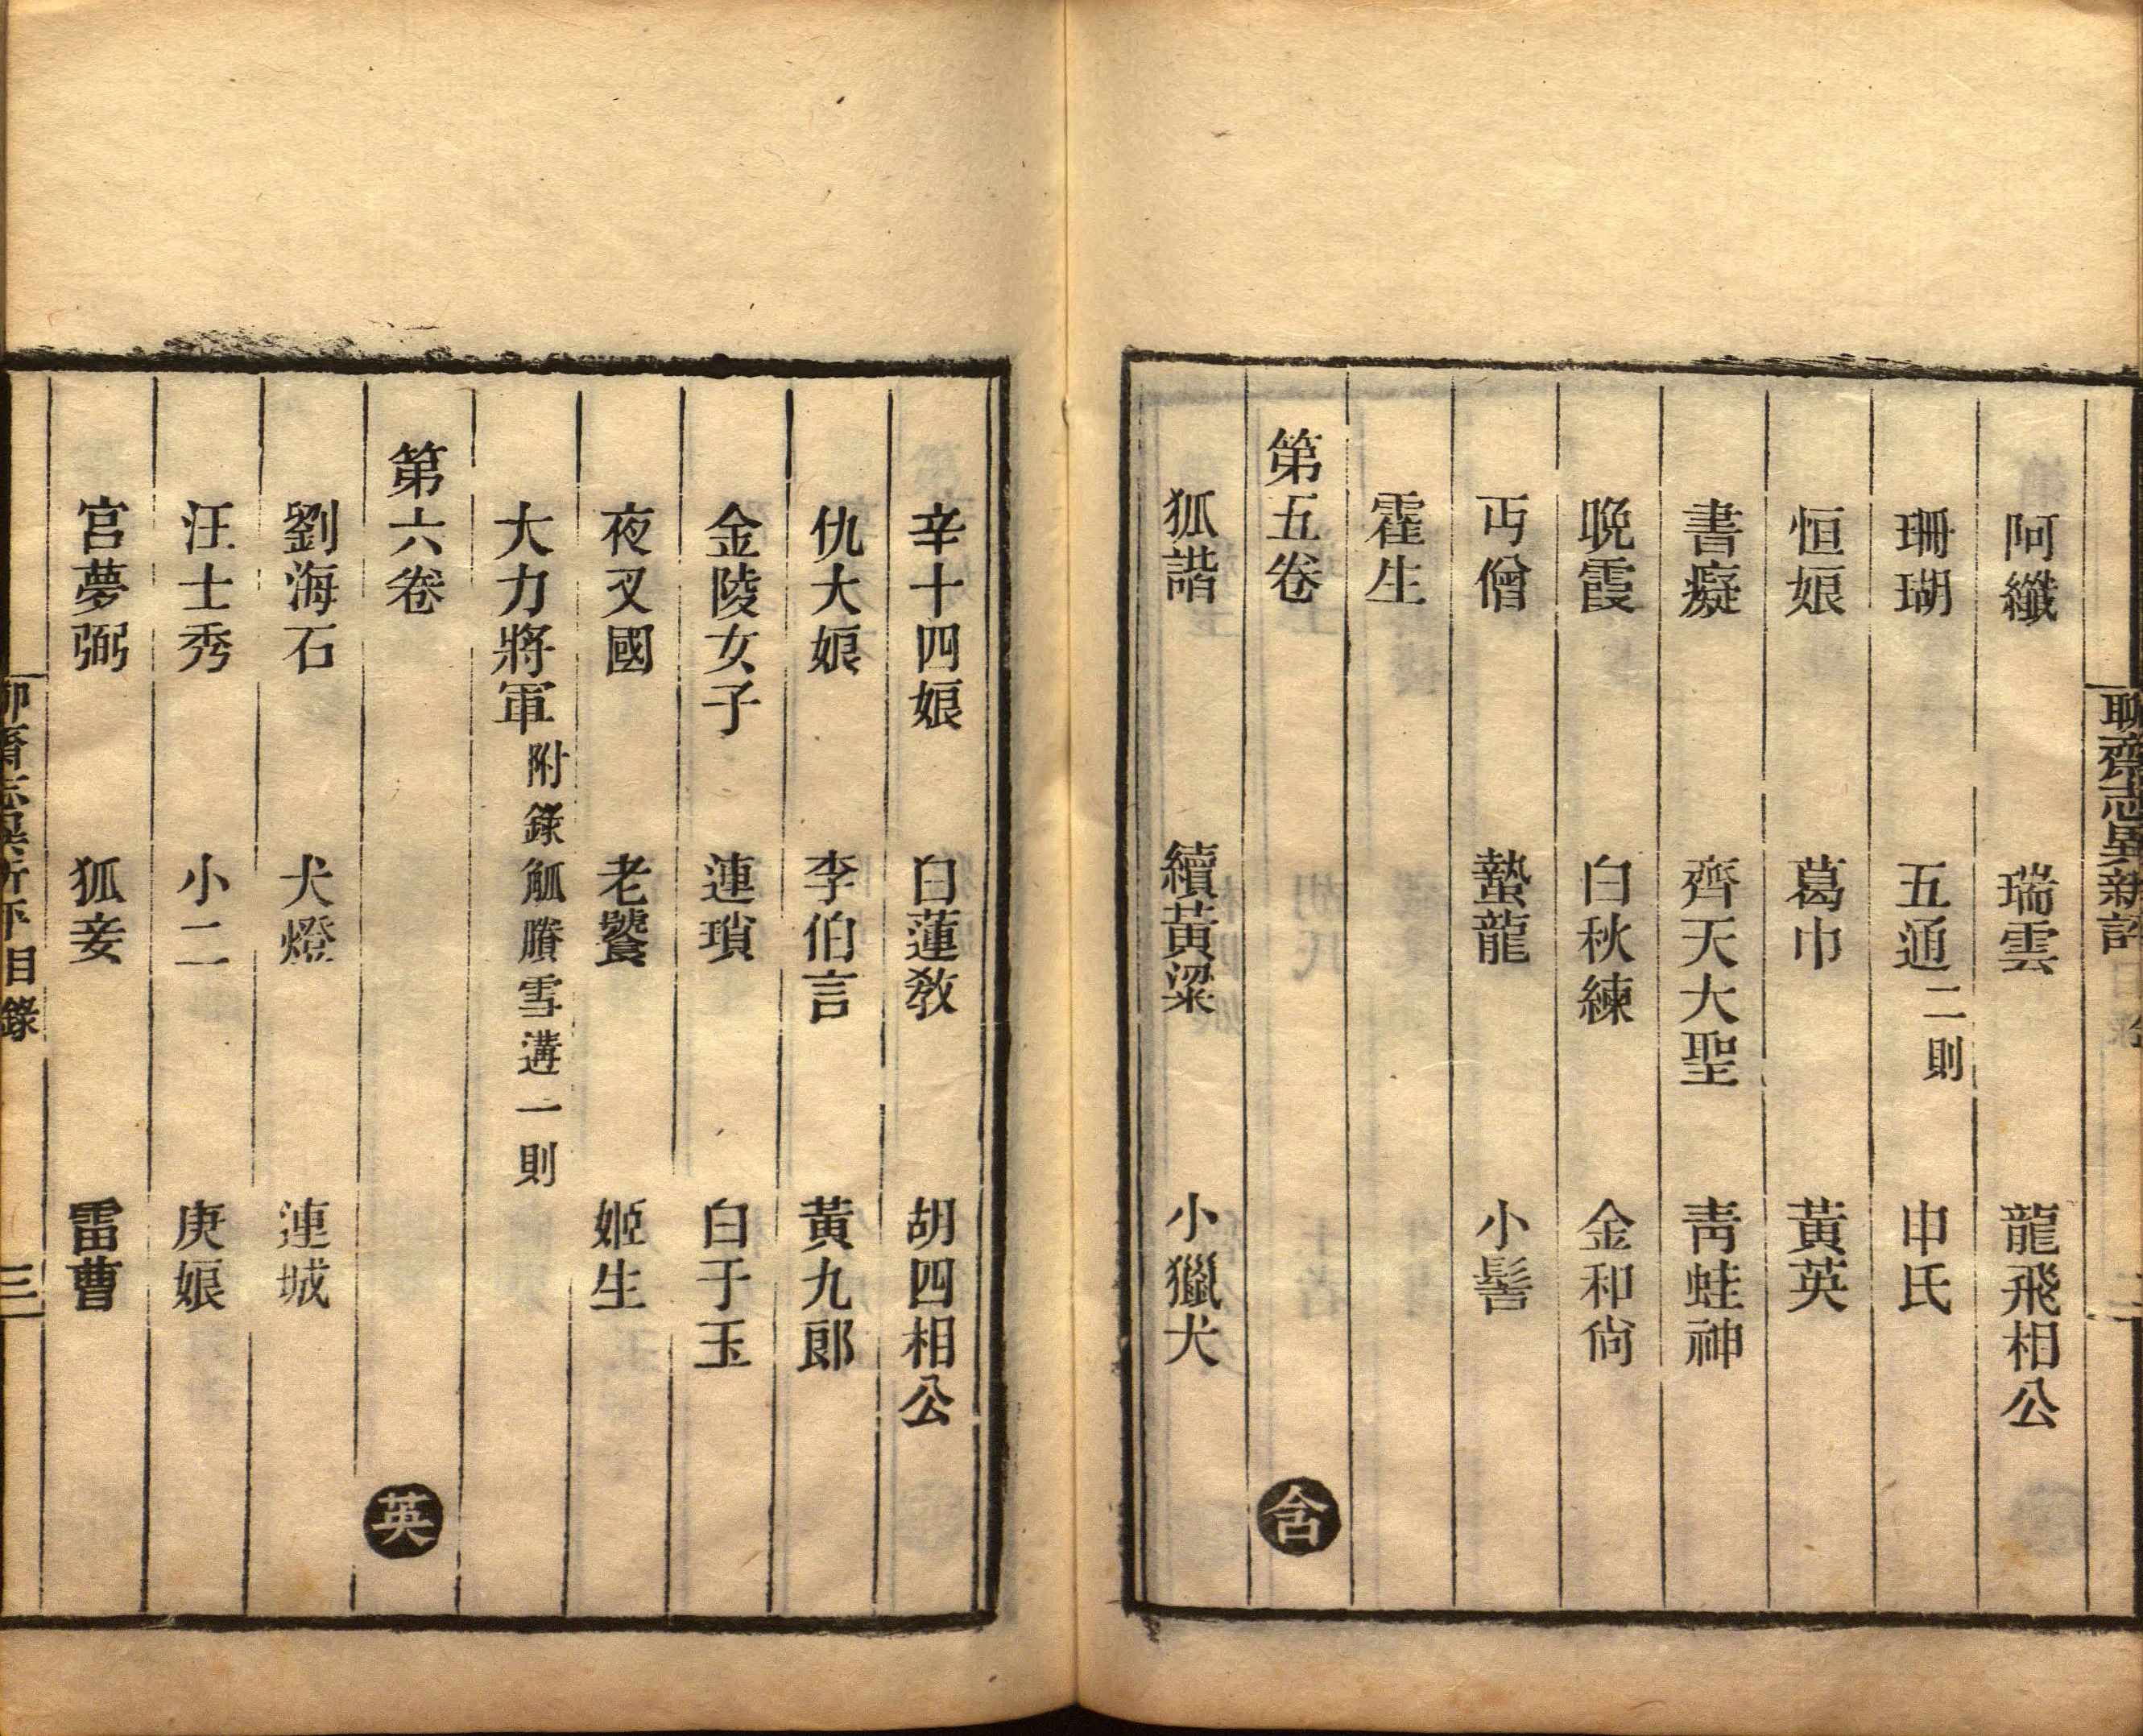 聊齋志異新評
阿纖 瑞雲 龍飛相公
珊瑚 五通二則 申氏
恒娘 葛巾 黃英
書癡 齊天大聖 青蛙神
晚霞 白秋練 金和尙
丐僧 蟄龍 小髻
霍生
第五卷 含
狐諧 續黃粱 小獵犬
辛十四娘 白蓮教 胡四相公
仇大娘 李伯言 黃九郎
金陵女子 連瑣 白于玉
夜叉國 老饕 姬生
大力將軍 附錄觚賸雪遘一則
第六卷 英
劉海石 犬燈 連城
汪士秀 小二 庚娘
宮夢弼 狐妾 雷曹
聊齋志異新評 目錄 三